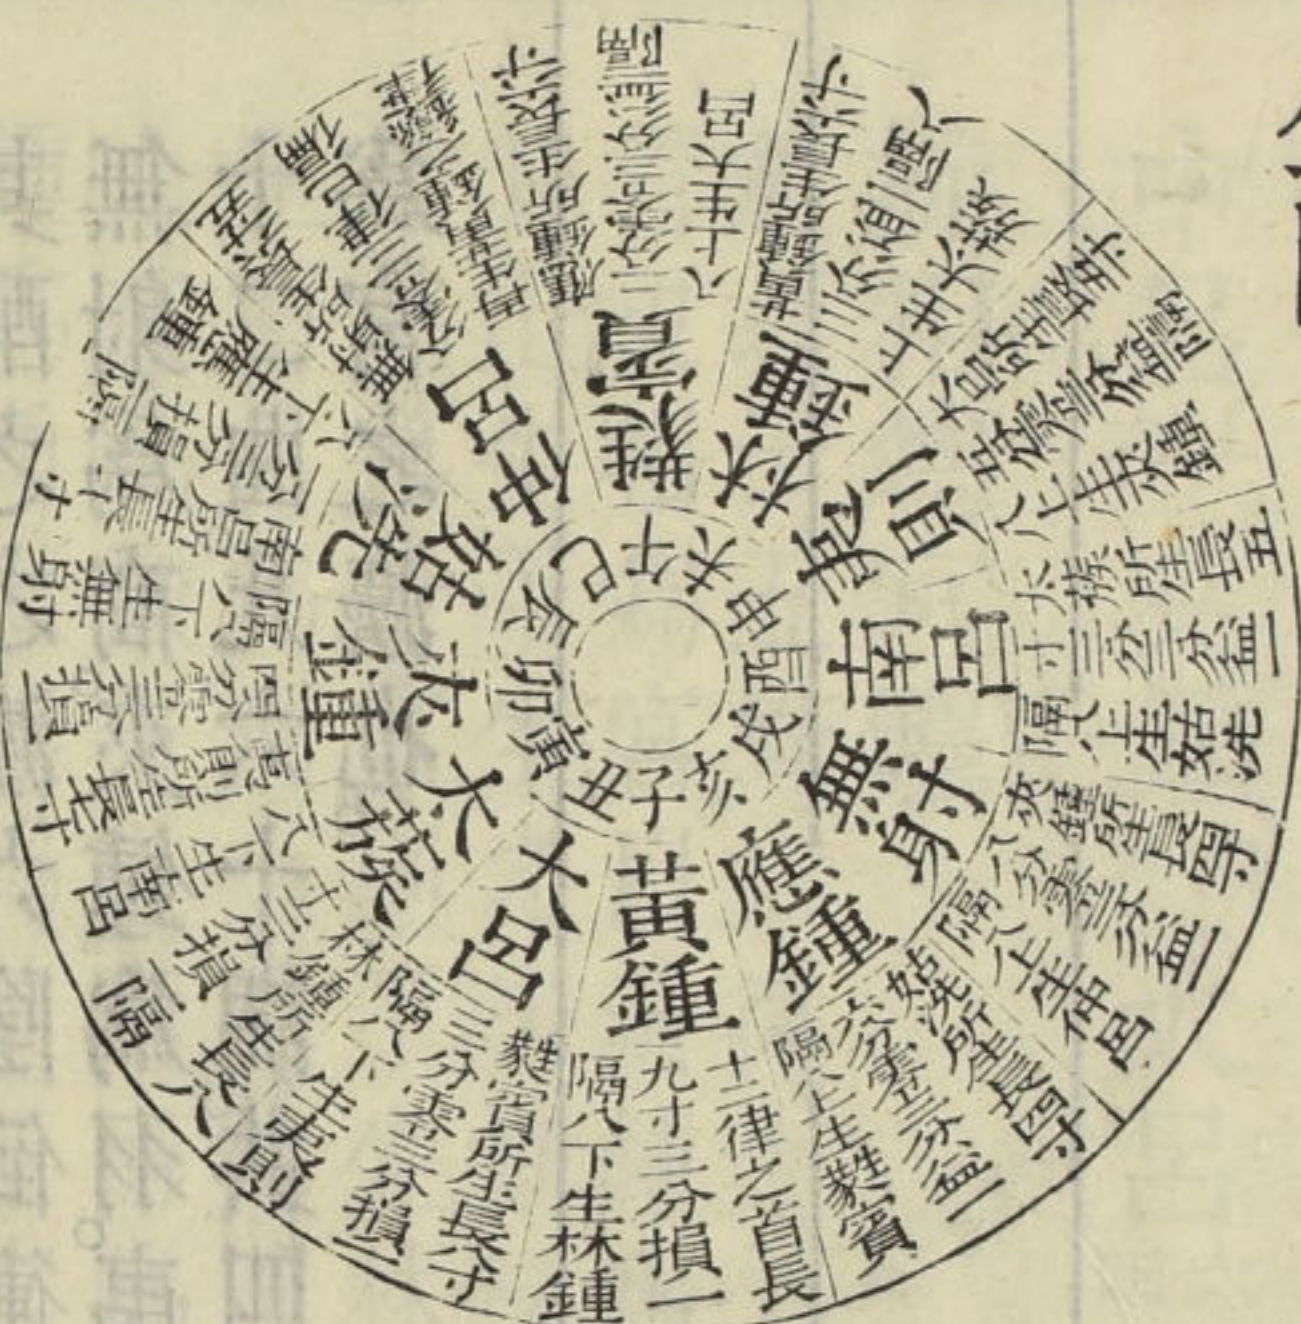 子
丑
寅
卯
辰
巳
午
未
申
酉
戌
亥
黃鍾
十二律之首長
九寸三分損一
隔八下生林鍾
大呂
蕤賓所生長八寸
三分零三分損一
隔八下生夷則
太蔟
林鍾所生長八
寸三分損一隔
八下生南呂
夾鍾
夷則所生長七寸
四分零三分損一
隔八下生無射
姑洗
南呂所生長七寸
三分損一隔
八下生應鍾
仲呂
無射所生長
蕤賓
應鍾所生長六寸
二分零三分益一隔
八上生大呂
林鍾
黃鍾所生長六寸
三分益一隔八
上生太蔟
夷則
大呂所生長
八上生夾鍾
南呂
太蔟所生長五
寸三分三分益一
隔八上生姑洗
無射
夾鍾所生長四寸
八分零三分益一
隔八上生仲呂
應鍾
姑洗所生長四寸
六分零三分益一
隔八上生蕤賓